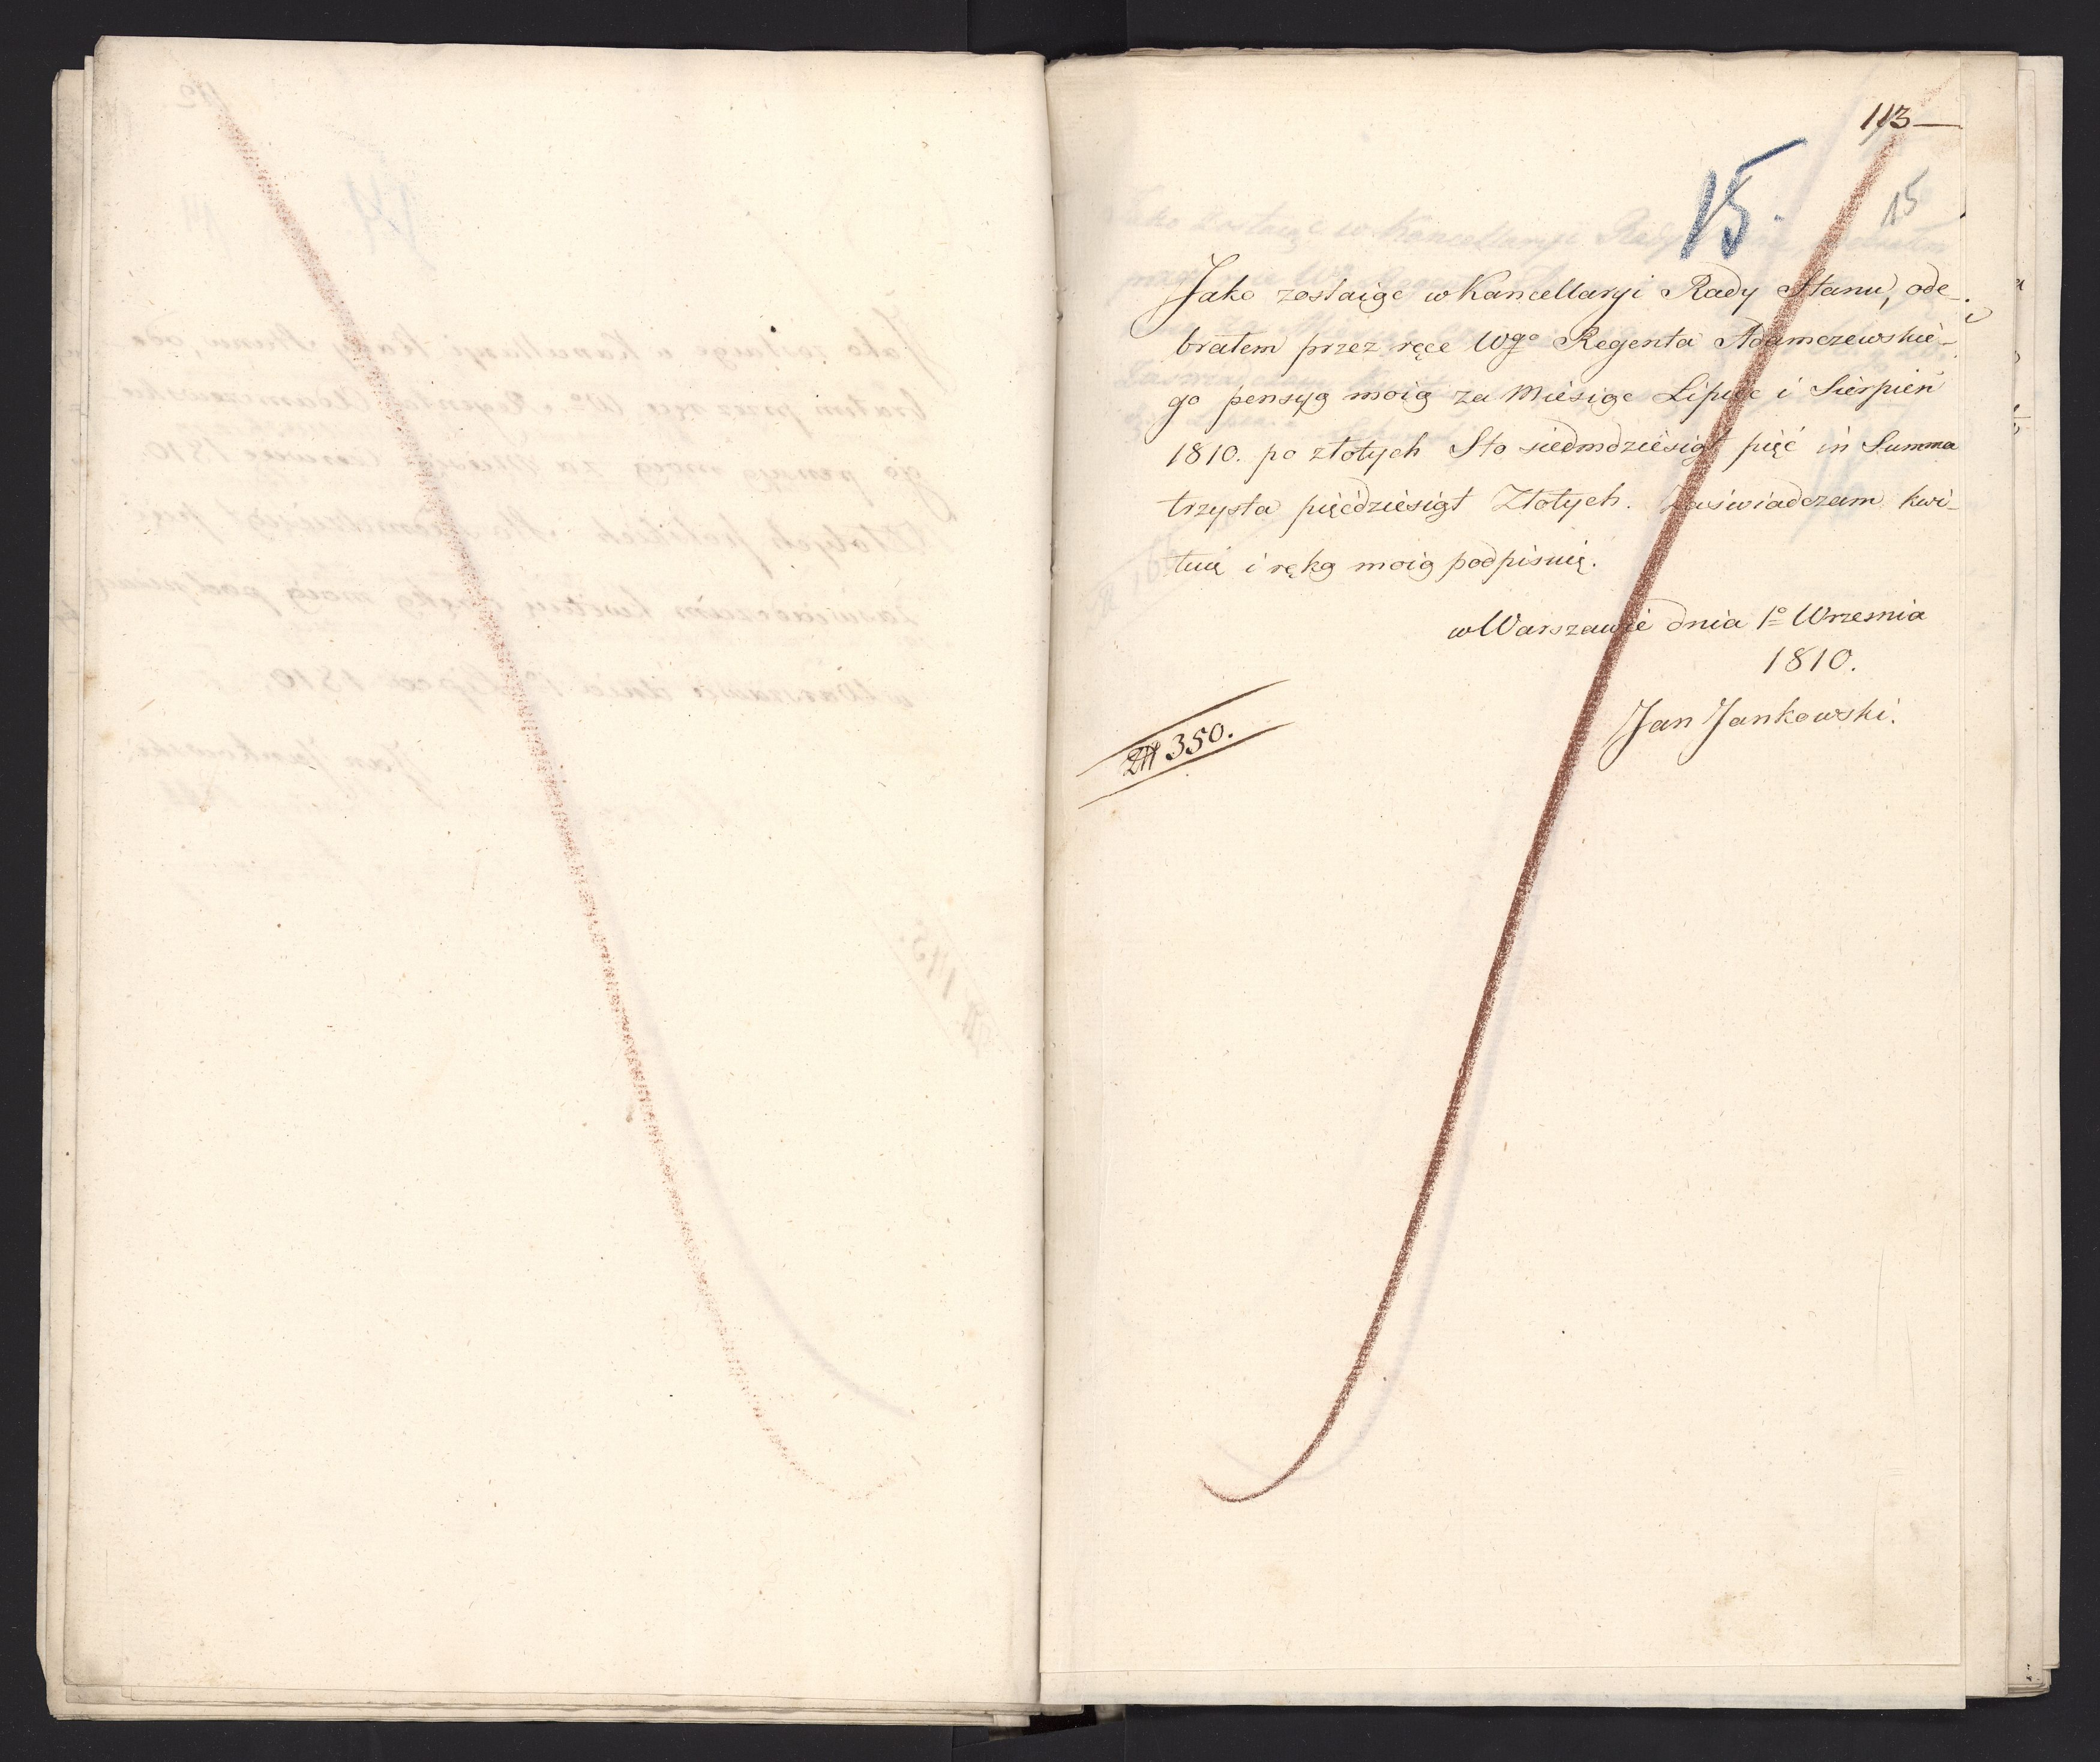 113
15.
15
Jako zostaiąc w Kancellaryi Rady Stanu, ode-
brałem przez ręce Wgo Regenta Adamczewskie-
go pensyą moią za Miesiąc Lipiec i Sierpień
1810. po złotych Sto siedmdziesiąt pięć in Summa
trzysta pięćdziesiąt Złotych. Zaświadczam kwi-
tuię i ręką moią podpisuię.
w Warszawie dnia 1o Wrzesnia
1810.
Jan Jankowski.
Złł 350.